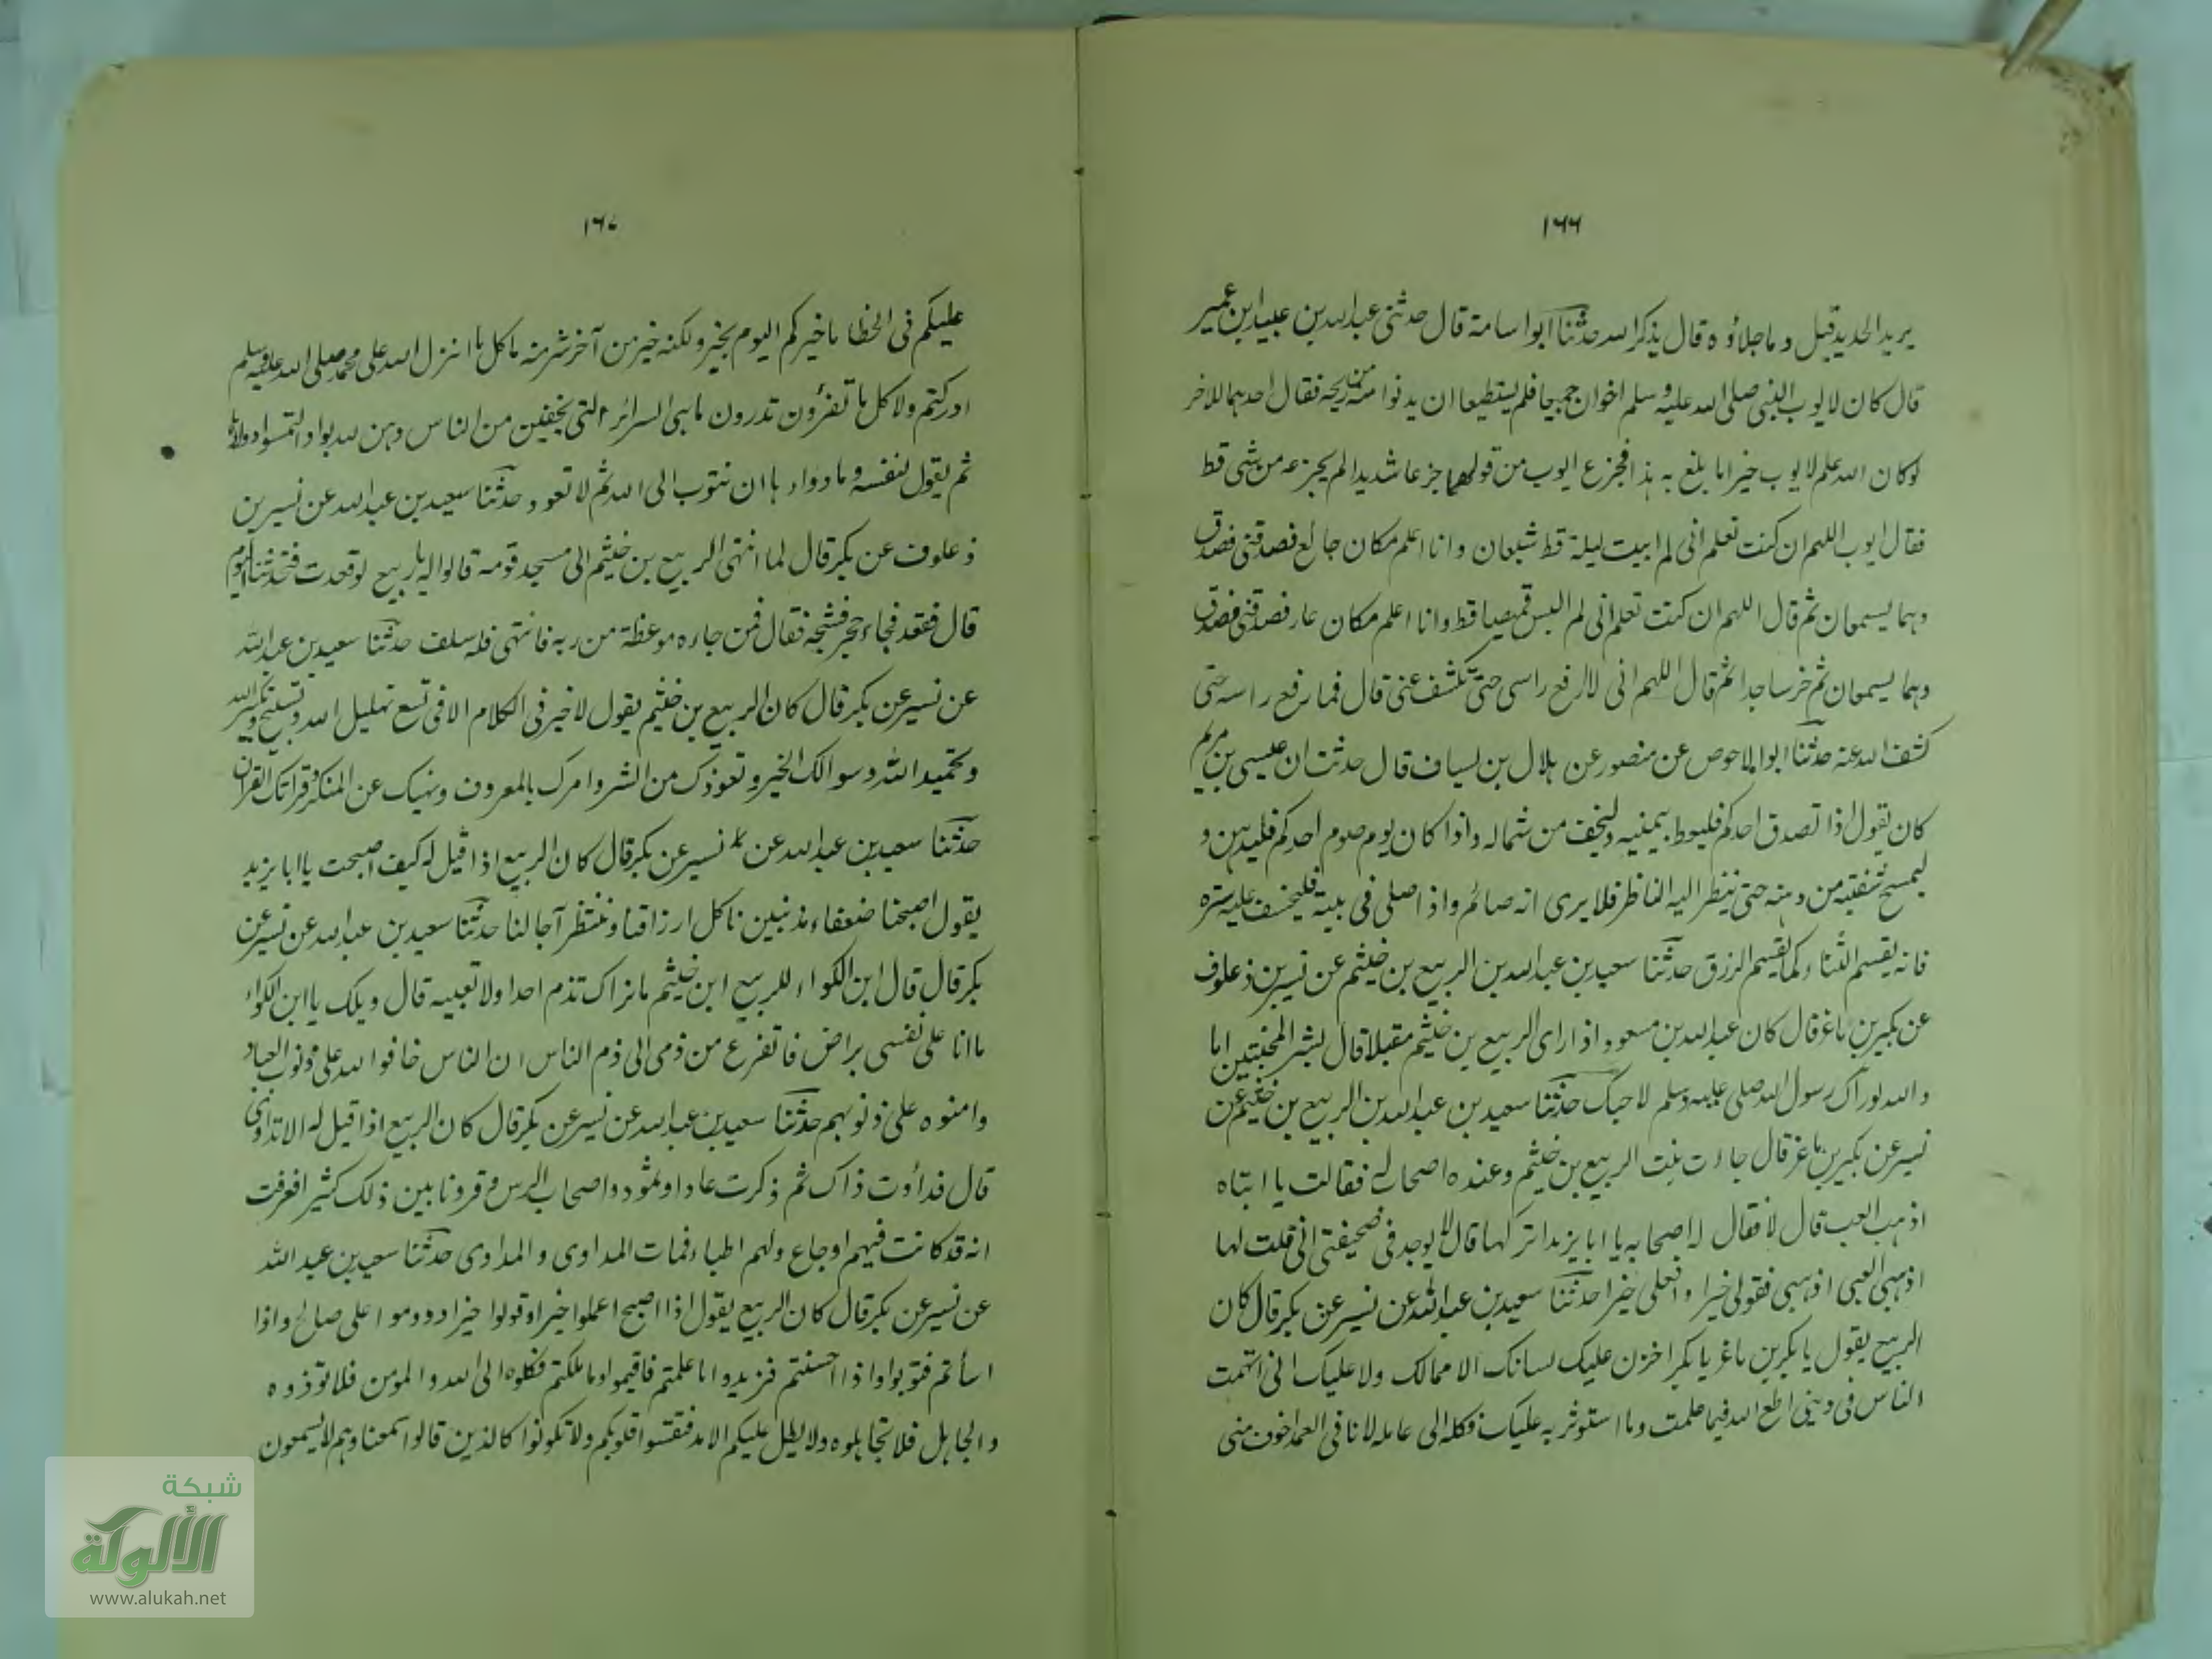 ١٦٦
يريد الحديد قيل وما جلاؤه قال يذكر الله حدثنا ابو اسامة قال حدثني عبد الله بن عبيد ابن عمير
قال كان لايوب النبي صلى الله عليه وسلم اخوان فلم يستطيعا ان يدنوا منه من ريحه فقال احدهما للاخر
لو كان الله علم لايوب خيرا ما بلغ به هذا فجزع ايوب من قولهما جزعا شديدا لم يجزعه من شي قط
فقال ايوب اللهم ان كنت تعلم اني لم ابيت ليلة قط شبعان وانا اعلم مكان جائع فصدقني فصدق
وهما يسمعان ثم قال اللهم ان كنت تعلم اني لم البس قميصا قط وانا اعلم مكان عار فصدقني فصدق
وهما يسمعان ثم خر ساجدا ثم قال اللهم اني لا ارفع راسي حتى تكشف عني قال فما رفع راسه حتى
كشف الله عنه حدثنا ابو الاحوص عن منصور عن هلال بن يساف قال حدثت ان عيسى بن مريم
كان يقول اذا تصدق احدكم فليعط بيمينه وليخف من شماله واذا كان يوم صوم احدكم فليدهن و
ليمسح شفتيه من دهنه حتى ينظر اليه الناظر فلا يرى انه صائم واذا صلى في بيته عليه ستره
فانه يقسم الثناء كما يقسم الرزق حدثنا سعيد بن عبد الله بن الربيع بن خثيم عن نسير بن ذعلوف
عن بكير بن ماعز قال كان عبد الله بن مسعود اذا راى الربيع بن خثيم مقبلا قال بشر المخبتين اما
والله لو راك رسول الله صلى عليه وسلم لاحبك حدثنا سعيد بن عبد الله بن الربيع بن خثيم عن
نسير عن بكير بن ماعز قال جاءت بنت الربيع بن خثيم وعنده اصحاب له فقالت يا ابتاه
اذهب العب قال لا فقال له اصحابه يا ابا يزيد اتركها قال لا يوجد في صحيفتي اني قلت لها
اذهبي العبي اذهبي فقولي خيرا وافعلي خيرا حدثنا سعيد بن عبد الله عن نسير عن بكر قال كان
الربيع يقول يا بكر بن ماعز يا بكر اخزن عليك لسانك الا مما لك ولا عليك اني اتهمت
الناس في ديني اطع الله فيما علمت وما استوثر به عليك فكله الى عامله لانا في العمد اخوف مني
١٦٧
عليكم في الخطا ما خيركم اليوم بخير ولكنه خير من آخر شر منه ما كل ما انزل الله على محمد صلى الله عليه وسلم
ادركتم ولا كل ما تقرؤن تدرون ما هي السرائر التي يخفين من الناس وهن لله بواد التمسوا دواءها
ثم يقول لنفسه وما دواءها ان تتوب الى الله ثم لا تعود حدثنا سعيد بن عبد الله عن نسير بن
ذعلوف عن بكر قال لما انتهى الربيع بن خثيم الى مسجد قومه قالوا له يا ربيع لو قعدت فتحدثنا اليوم
قال فقعد فجاء حجر فشجه فقال فمن جاءه موعظة من ربه فانتهى فله سلف حدثنا سعيد بن عبد الله
عن نسير عن بكر قال كان الربيع بن خثيم يقول لا خير في الكلام الا في تسع تهليل الله وتسبيح وتكبير الله
وتحميد الله وسوالك الخير وتعوذك من الشر وامرك بالمعروف ونهيك عن المنكر وقراتك القران
حدثنا سعيد بن عبد الله عن نسير عن بكر قال كان الربيع اذا قيل له كيف اصبحت يا ابا يزيد
يقول اصبحنا ضعفاء مذنبين ناكل ارزاقنا وننتظر آجالنا حدثنا سعيد بن عبد الله عن نسير عن
بكر قال قال ابن الكواء للربيع ابن خثيم ما نراك تذم احدا ولا تعيبه قال ويلك يا ابن الكواء
ما انا على نفسي براض فاتفرغ من ذمي الى ذم الناس ان الناس خافوا الله على ذنوب العباد
وامنوه على ذنوبهم حدثنا سعيد بن عبد الله عن نسير عن بكر قال كان الربيع اذا قيل له الا تداوى
قال قد أردت ذاك ثم ذكرت عادا وثمود واصحاب الرس وقرونا بين ذلك كثيرا فعرفت
انه قد كانت فيهم اوجاع ولهم اطباء فمات المداوي والمداوى حدثنا سعيد بن عبد الله
عن نسير عن بكر قال كان الربيع يقول اذا اصبح اعملوا خيرا وقولوا خيرا ودوموا على صالح واذا
اسأتم فتوبوا واذا احسنتم فزيدوا ما علمتم فاقيموا وما فكلوه الى الله والمومن فلا توذوه
والجاهل فلا تجاهلوه ولا يطل عليكم الامد فتقسوا قلوبكم ولا تكونوا كالذين قالوا سمعنا وهم لا يسمعون
شبكة
الألوكة
www.alukah.net